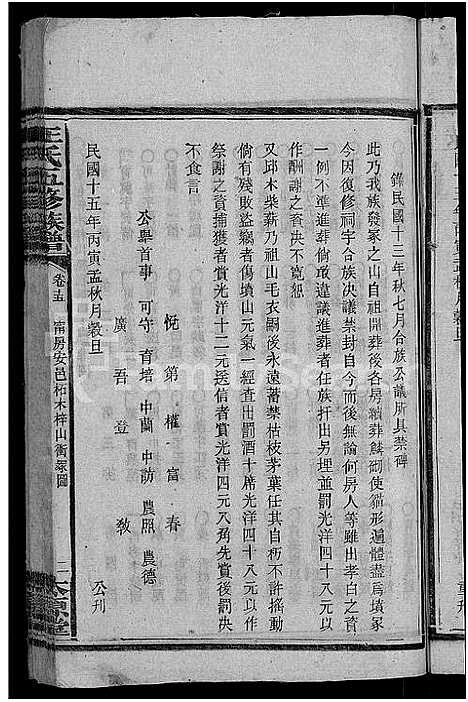 錄民國十三年秋七月合族公議所具禁碑
此乃我族發冢之山自祖開葬後各房續葬鱗砌使貓形遍體盡爲墳冢
今因復修祠宇合族决議禁封自今而後無論何房人等雖出孝白之資
一例不準進葬倘敢違議進葬者任族扦出另埋並罰光洋四十八元以
作酬謝之資决不寬恕
又邱木柴薪乃祖山毛衣嗣後永遠蓄禁枯枝茅葉任其自朽不許搖動
倘有殘敗盜竊者傷墳山元氣一經查出罰酒十席光洋四十八元以作
祭謝之資捕獲者賞光洋十二元送信者賞光洋四元八角先賞後罰决
不食言
公舉首事 可守 育培 中蘭 中訪 農熙 農德
悅 第 權 富 春
廣 吾 登 敎
公刊
民國十五年丙寅孟秋月穀旦
氏五修族譜 卷十五 甯房安邑柘木梓山衛冢圖 二